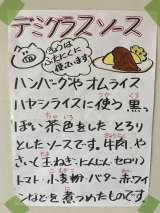 デミグラスソース
きょうは
ぶたにくに
使っています
ハンバーグやオムライス
ハヤシライスに使う黒っ
ぽい茶色をした とろり
としたソースです。牛肉や
やさい(玉ねぎ・にんじん・セロリ)
トマト・小麦粉・バター・赤ワイ
ンなどを煮つめたものです